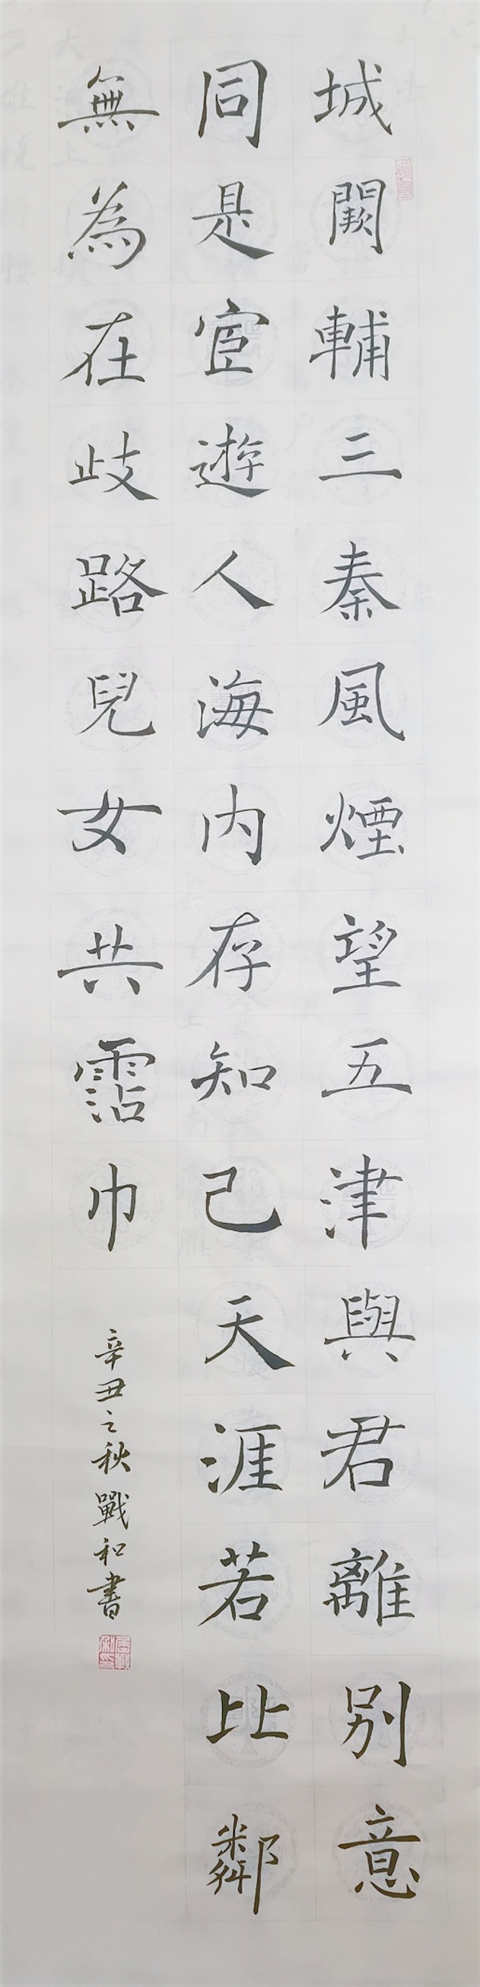 城闕輔三秦風煙望五津與君離別意
同是宦遊人海内存知己天涯若比鄰
無為在歧路兒女共霑巾
辛丑之秋戰和書